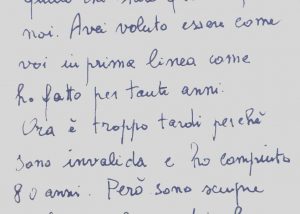 noi. Avrei voluto essere come
voi in prima linea come
ho fatto per tante anni.
Ora è troppo tardi perchè
sono invalida e ho compiuto
80 anni. Però sono sempre